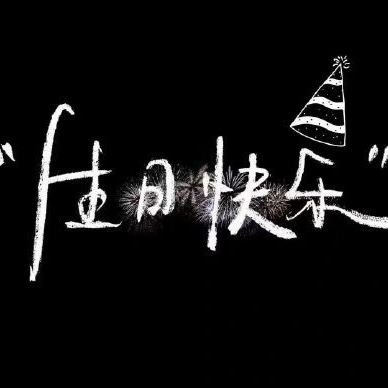 "生日快乐"